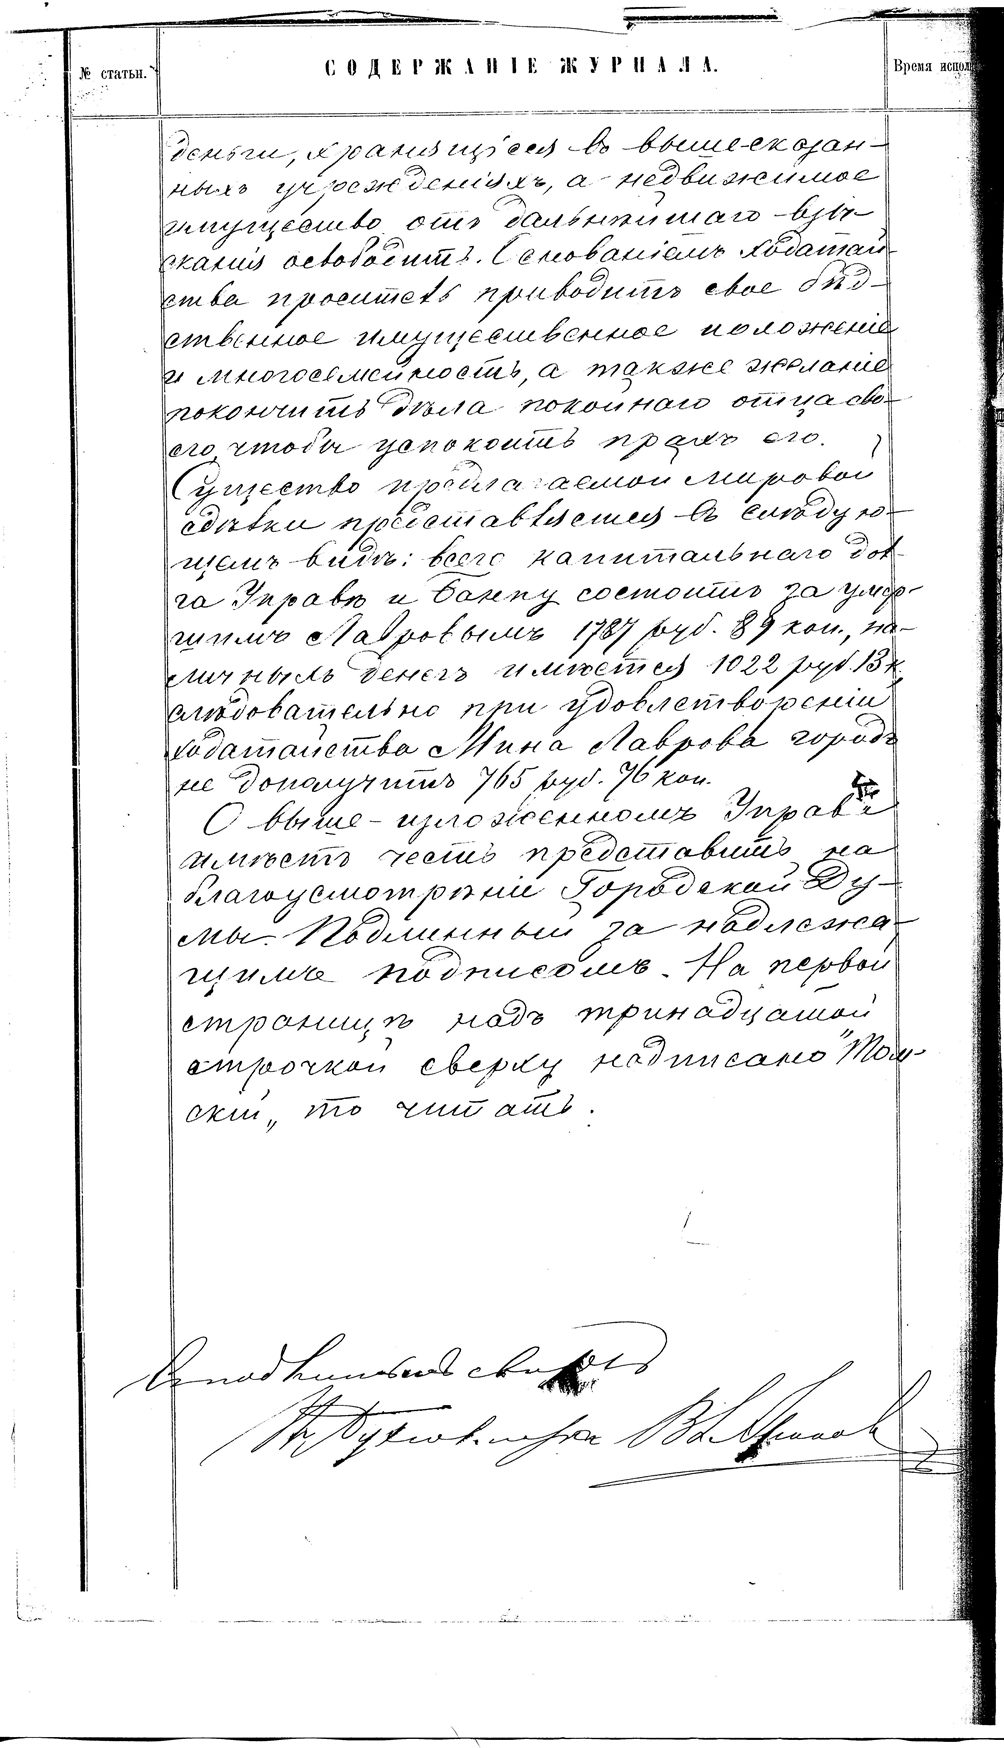 № статьи.
СОДЕРЖАНІЕ ЖУРНАЛА.
Время испол
деньги, хранящіеся въ вышесказан-
ныхъ учрежденіяхъ, а недвижимое
имущество отъ дальнѣйшаго взы-
сканія освободить. Основаніемъ ходатай-
ства проситель приводитъ свое бѣд-
ственное имущественное положеніе
и многосемейность, а также желаніе
покончить дѣла покойнаго отца сво-
его, чтобы успокоить прахъ его.
Существо предлагаемой мировой
сдѣлки представляется въ слѣдую-
щемъ видѣ: всего капитальнаго дол-
га Управѣ и Банку состоитъ за умер-
шимъ Лавровымъ 1787 руб. 89 коп., на-
личныхъ денегъ имѣется 1022 руб. 13 к.
слѣдовательно при удовлетвореніи
ходатайства Мина Лаврова городъ
не дополучитъ 765 руб. 76 коп.
О выше-изложенномъ Управа
имѣетъ честь представить на
благоусмотрѣніе Городской Ду-
мы. Подлинный за надлежа-
щимъ подписомъ. На первой
страницѣ надъ тринадцатой
строчкой сверху надписано "Том-
скій„ то читать.
Съ подлиннымъ